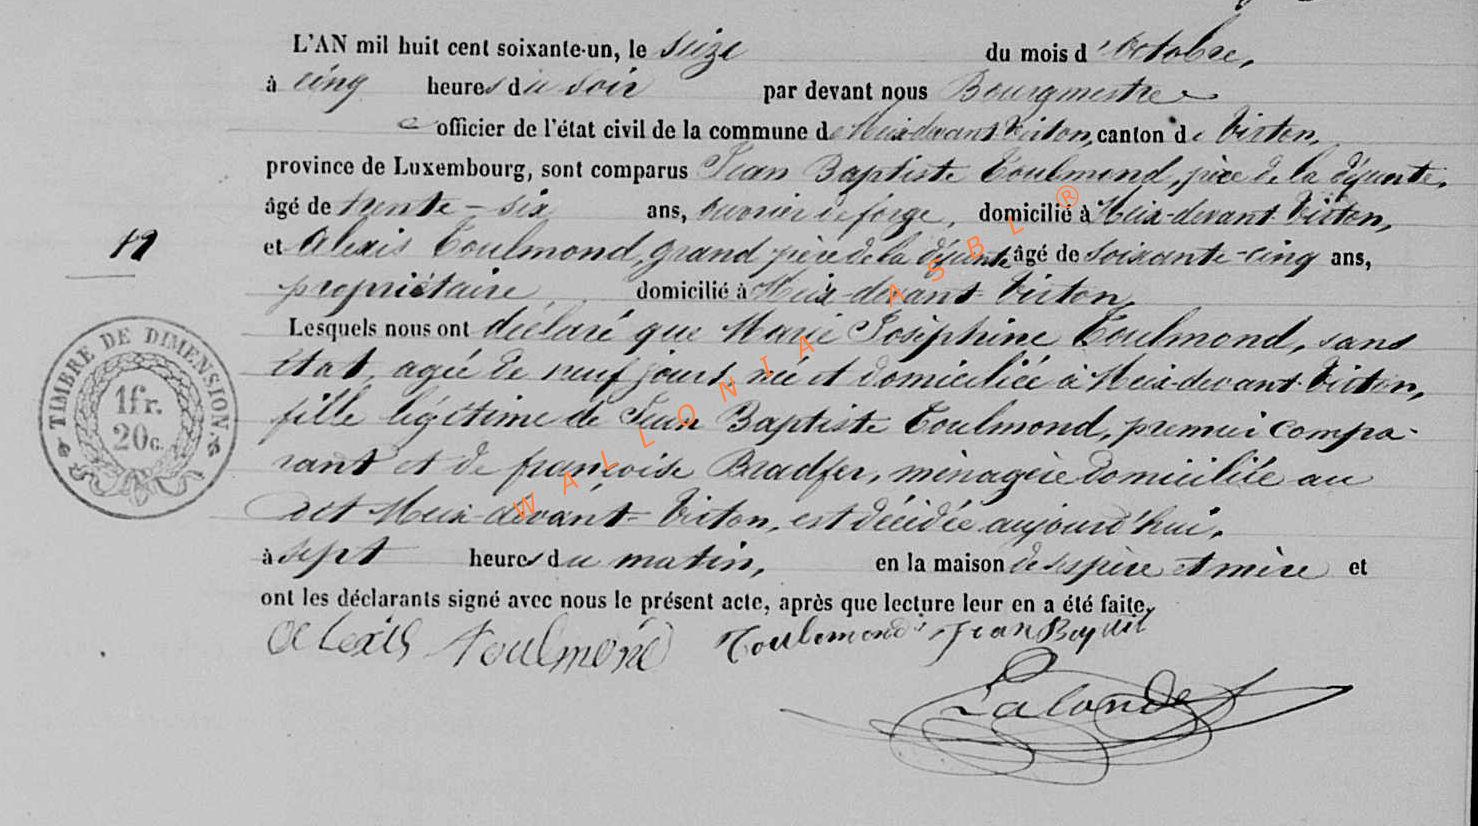 L'AN mil huit cent soixante-un, le seize du mois d'Octobre,
à cinq heures du soir par devant nous Bourgmestre
officier de l'état civil de la commune de Meix-devant-Virton, canton de Virton,
province de Luxembourg, sont comparus Jean Baptiste Toulmond, père de la défunte,
âgé de trente-six ans, ouvrier de forge, domicilié à Meix-devant-Virton,
19
et Alexis Toulmond, grand père de la défunte, âgé de soixante-cinq ans,
propriétaire, domicilié à Meix-devant-Virton,
Lesquels nous ont déclaré que Marie Joséphine Toulmond, sans
état, agée de neuf jours, née et domiciliée à Meix-devant-Virton,
fille légitime de Jean Baptiste Toulmond, premier compa-
rant et de françoise Bradfer, ménagère domiciliée au
dit Meix-devant-Virton, est décédée aujourd'hui,
à sept heures du matin, en la maison de ses père et mère et
ont les déclarants signé avec nous le présent acte, après que lecture leur en a été faite,
alexis toulmond Toulemond Jean Baptist
Lalande
TIMBRE DE DIMENSION
1fr.
20c.
WALLONIA ASBL ®